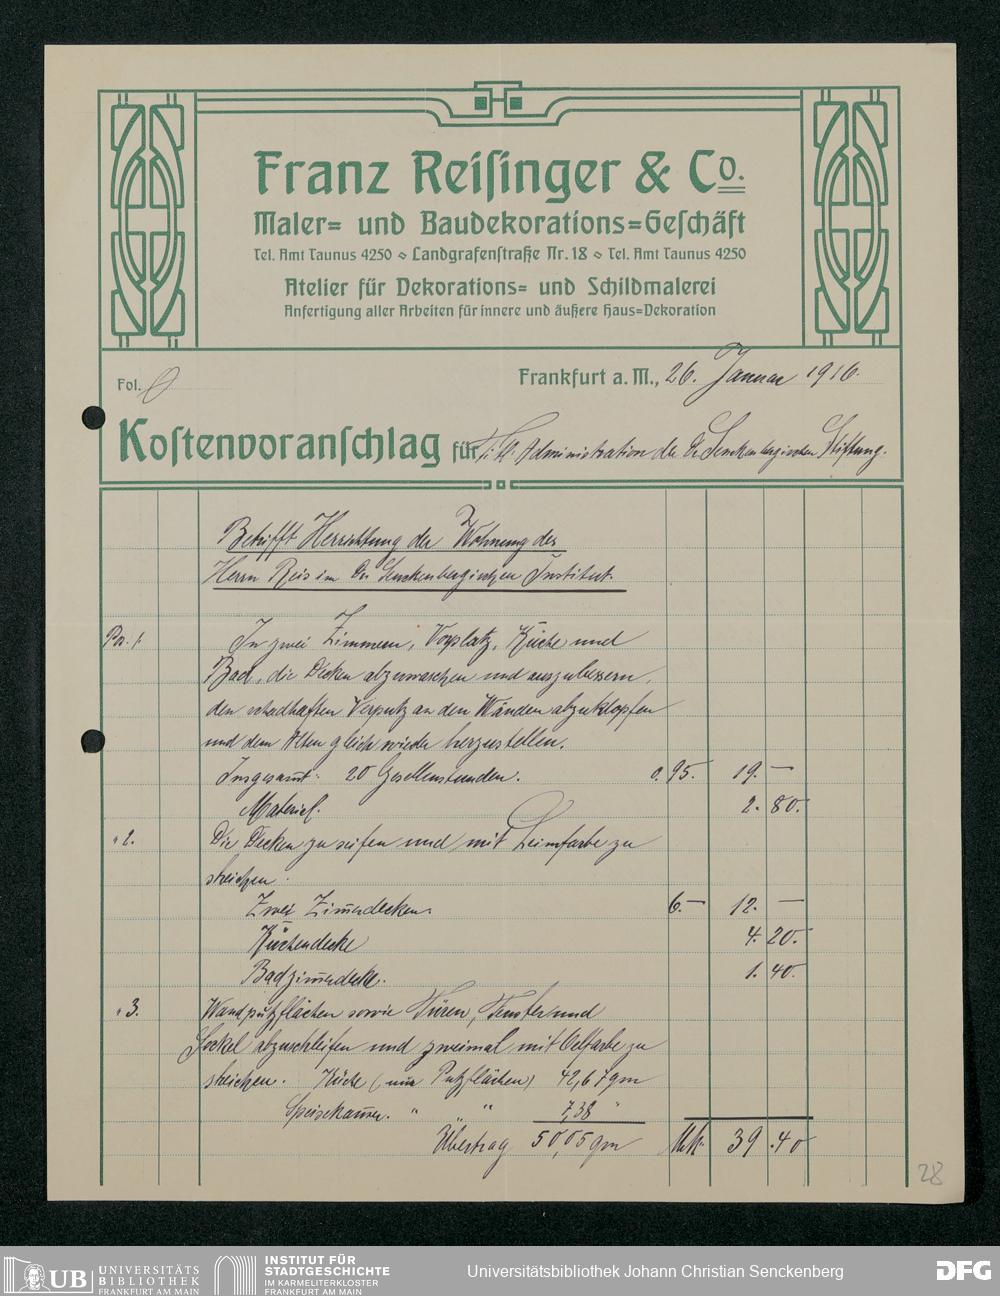 Franz Reiſinger & Co.
Maler= und Baudekorations=Geſchäft
Tel. Amt Taunus 4250 ⋄ Landgrafenſtraße Nr. 18 ⋄ Tel. Amt Taunus 4250
Atelier für Dekorations= und Schildmalerei
Anfertigung aller Arbeiten für innere und äußere Haus=Dekoration
Fol.
Frankfurt a. M., 26. Januar 1916.
Koſtenvoranſchlag für Administration der Dr. Senckenbergischen Stiftung.
Betrifft Herrichtung der Wohnung des
Herrn Reis im Dr. Senckenbergischen Institut.
Pos. 1. In zwei Zimmern, Vorplatz, Küche und
Bad, die Decken abzuwaschen und auszubessern,
den schadhaften Verputz an den Wänden abzuklopfen
und dem Alten gleich wieder herzustellen.
Insgesamt: 20 Gesellenstunden. 0.95. 19. —
Material. 2. 80.
" 2. Die Decken zu seifen und mit Leimfarbe zu
streichen.
Zwei Zim̅erdecken. 6. — 12. —
Küchendecke 4. 20.
Badzim̅erdecke. 1. 40.
" 3. Wandputzflächen sowie Türen, Fenster und
Sockel abzuschleifen und zweimal mit Oelfarbe zu
streichen. Küche (nur Putzflächen) 42,67 qm
Speisekam̅er. " " " 7,38 "
Übertrag 50,05 qm Mk. 39.40
28
UB UNIVERSITÄTS
BIBLIOTHEK
FRANKFURT AM MAIN
INSTITUT FÜR
STADTGESCHICHTE
IM KARMELITERKLOSTER
FRANKFURT AM MAIN
Universitätsbibliothek Johann Christian Senckenberg
DFG